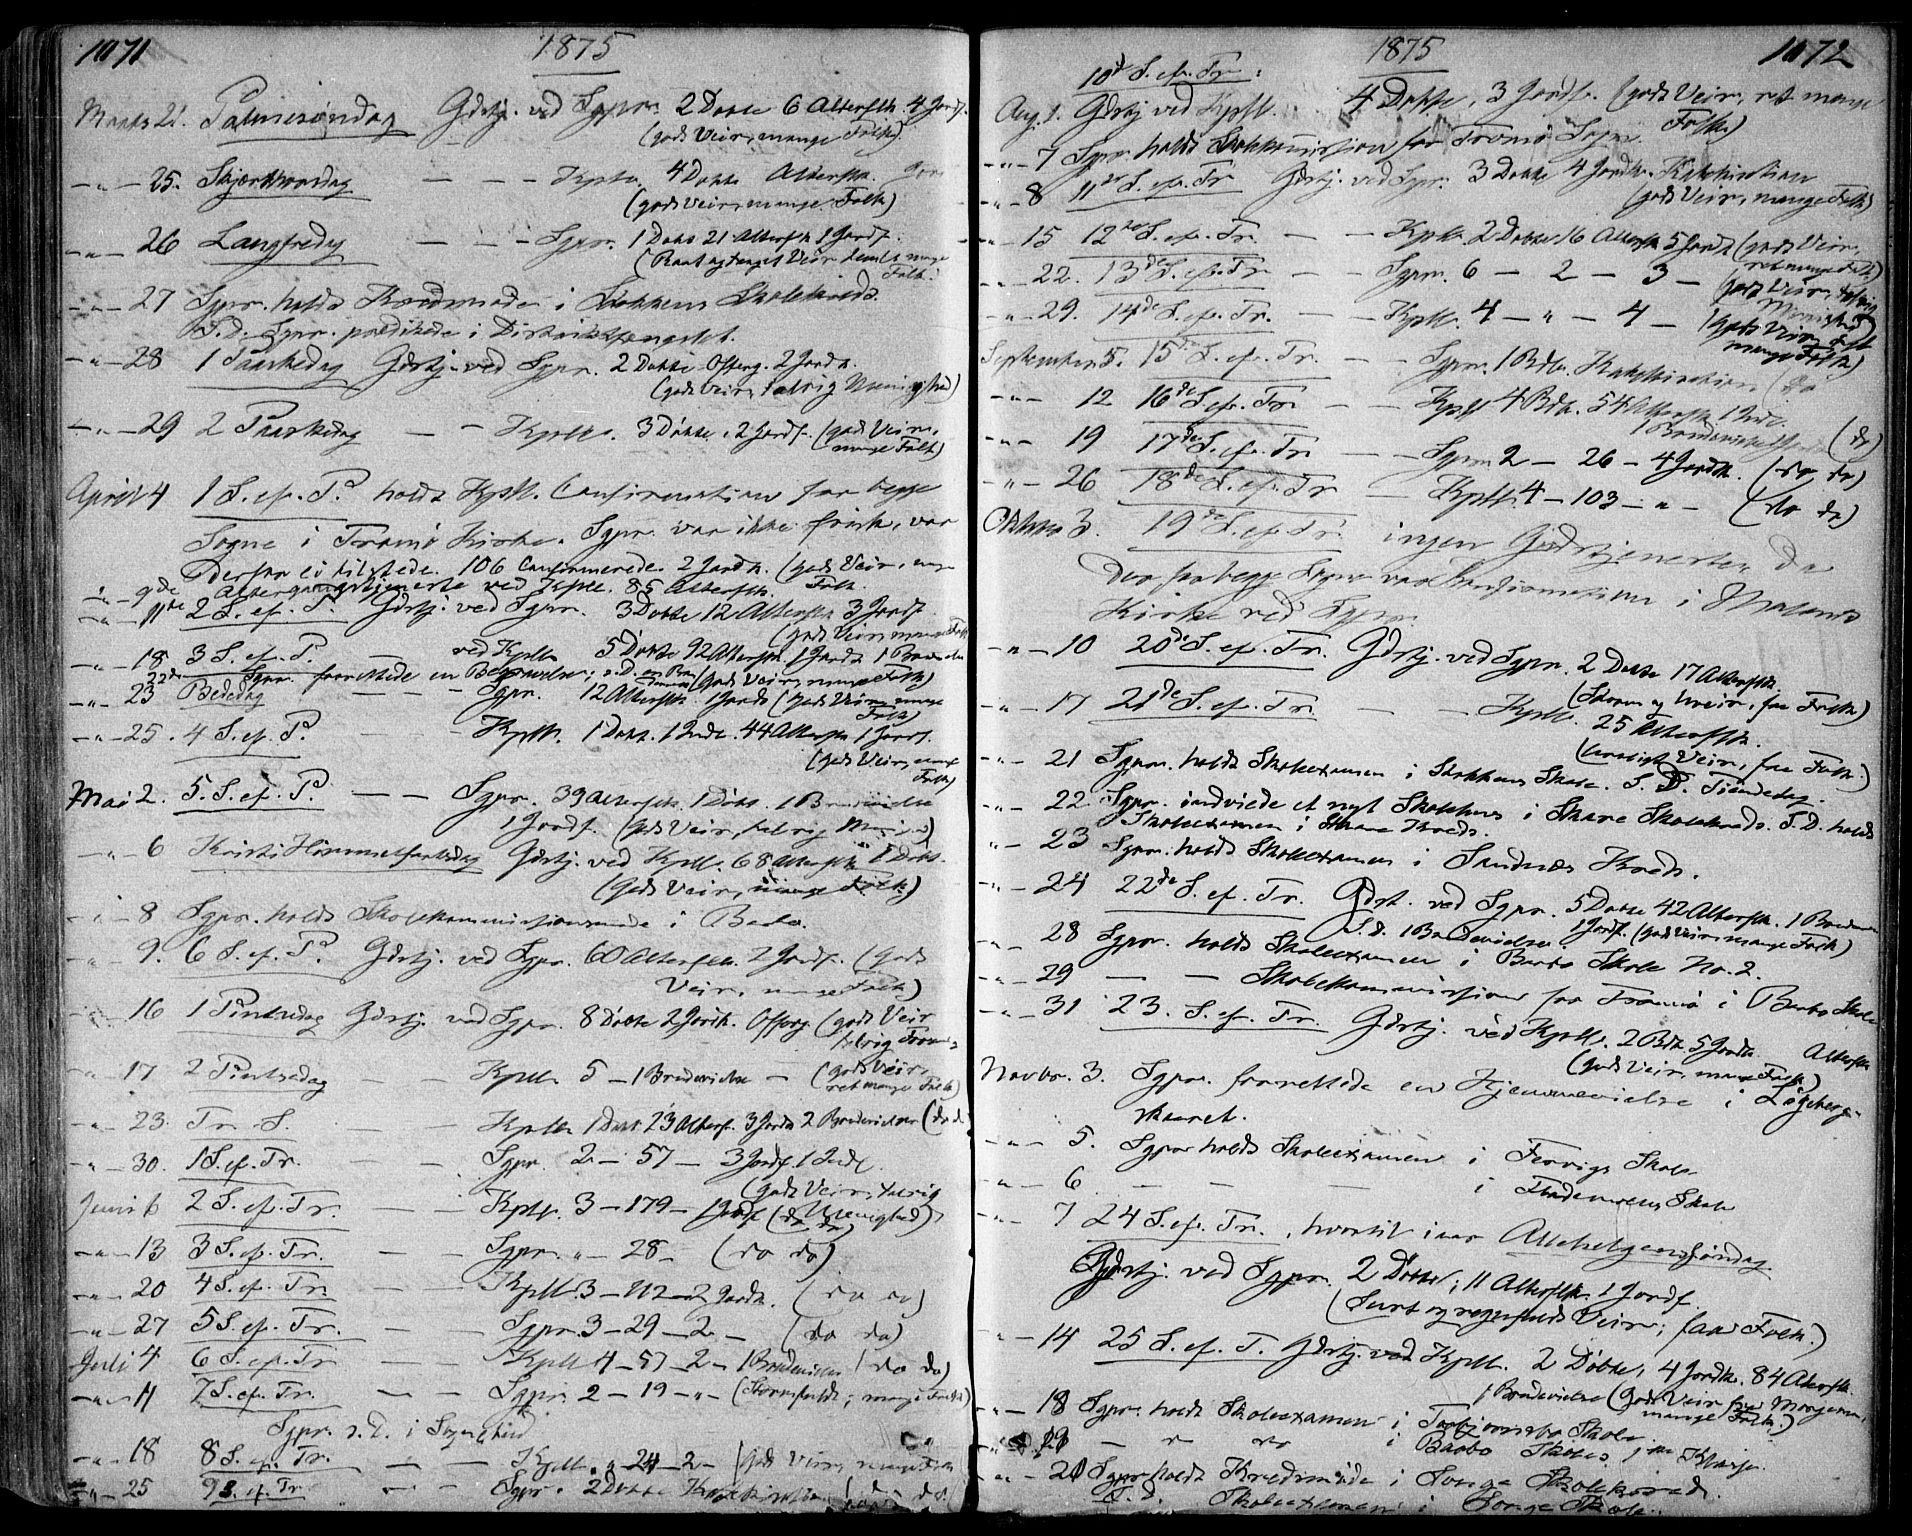 1071
1875
Marts 21. Palmesøndag Gdstj. ved Sgpr. 2 Døbte 6 Altersgk. 4 Jordf.
(godt Veir, mange Folk)
-"- 25. Skjærthorsdag — — Kpln. 4 Døbte Altersk.
(godt Veir, mange Folk)
-"- 26 Langfredag — — Sgpr. 1 Døbt 21 Altersgk 1 Jordf.
(Raat og taaget Veir, temlig mange
Folk)
-"- 27 Sgpr. holdt Kredsmøde i Stokkens Skolekreds.
S. D. Sgpr. prædikede i Distriktsfængslet.
-"- 28 1 Paaskedag Gdstj. ved Sgpr. 2 Døbte. Ofring. 2 Jordk.
(godt Veir, talrig Menighed)
-"- 29 2 Paaskedag — — Kpll. 3 Døbte, 2 Jordf. (godt Veir,
mange Folk)
April 4 1 S. ef. P. holdt Kpll. Confirmation for begge
Sogne i Tromø Kirke. Sgpr. var ikke frisk, var
derfor ei tilstede. 106 Confirmerede. 2 Jordk. (godt Veir, mge
Folk
-"- 9de Altergangstjeneste ved Kpll. 85 Altersgk.
-"- 11te 2 S. ef. P. Gdstj. ved Sgpr. 3 Døbte 12 Altersgk 3 Jordf.
(godt Veir, mange Folk
-"- 18 3 S. ef. P. — ved Kpll. 5 Døbte 92 Altersgk. 1 Jordk 1 Brudevielse
(godt Veir, mange Folk)
22de Sgpr. forrettede en Begravelse; s. D.
-"- 23 Bededag — — Sgpr. 12 Altersgk. 1 Jordf (godt Veir, mange
Folk)
-"- 25. 4 S. ef. P. Kpll. 1 Døbt. 1 Indl. 44 Altersgk 1 Jordf.
(godt Veir, mge
Folk)
Mai 2. 5. S. ef. P. — — Sgpr. 39 Altersgk. 1 Døbt. 1 Brudevielse
1 Jordf. (godt Veir, talrig Menighed)
-"- 6 Kristi Himmelfartsdag Gdstj. ved Kpll. 68 Altersgk 1 Døbt.
(godt Veir, mange Folk)
-"- 8 Sgpr. holdt Skolekommissionsmøde i Barbo.
-"- 9. 6 S. ef. P. Gdstj. ved Sgpr. 60 Altersgk. 2 Jordf. (godt
Veir, mange Folk)
-"- 16 1 Pintsedag Gdstj. ved Sgpr. 8 Døbte 2 Jordk. Ofrg. (godt Veir
talrig
-"- 17 2 Pintsedag — — Kpll. 5 — 1 Brudevielse — (godt Veir,
ret mange Folk)
-"- 23. Tr. S. — — Kpll. 1 Døbt. 23 Altersg. 3 Jordk 2 Brudevielser (do do
-"- 30. 1 S. ef. Tr. — — Sgpr. 2 — 57 — 3 Jordf. 1 Indl.
(godt Veir, talrig
Menighed)
Juni 6 2 S. ef. Tr. — — Kpll. 3 — 179 — 1 Jordf (do do)
-"- 13 3 S. ef. Tr. — — Sgpr. " — 28 — (do do)
-"- 20 4 S. ef. Tr. — — Kpll. 3 — 112 — 2 Jordk. (do do)
-"- 27 5 S. ef. Tr. — — Sgpr. 3 — 29 — 2 — (do do)
Juli 4 6 S. ef. Tr — — Kpll 4 — 57 — 2 — 1 Brudevielse (do do)
-"- 11 7 S. ef. Tr. — — Sgpr. 2 — 19 — " — (Stormfuldt; mange Folk)
Sgpr. s. D. i Sognebud
-"- 18 8 S. ef. Tr. — — Kpll. " 24 — 2 — (godt Veir, mange Folk
-"- 25 9 S. ef. Tr — — Sgpr. 2 Døbte Katekisation (do do)
1875
1072
10de S. ef. Tr.:
Aug. 1. Gdstj ved Kpll. 4 Døbte, 3 Jordf. (godt Veir, ret mange
Folk)
-"- 7 Sgpr. holdt Skolekommission for Tromø Sogn.
-"- 8 11te S. ef. Tr Gdstj. ved Sgpr. 3 Døbte 4 Jordk. Katekisation
(godt Veir, mange Folk)
-"- 15 12te S. ef. Tr. — — Kpll. 2 Døbte 16 Altersgk 5 Jordk (godt Veir,
ret mange Folk)
-"- 22. 13de S. ef. Tr. — — Sgpr. 6 — 2 — 3 — (godt Veir, talrig
Menighed)
-"- 29. 14de S. ef. Tr. — — Kpll. 4 — " — 4 — (godt Veir,
mange Folk)
September 5. 15de S. ef. Tr. — — Sgpr. 1 Bdv. Katekisation (do
-"- 12 16de S. ef. Tr. — — Kpll 4 Bdt. 54 Altersgk 1 Indl.
1 Brudevielse (do)
-"- 19 17de S. ef. Tr. — — Sgpr. 2 — 26 — 4 Jordk. (do, do)
-"- 26 18de S. ef. Tr — Kpll. 4 — 103 — " — (do do)
Oktober 3. 19de S. ef. Tr. ingen Gudstjeneste, da
der for begge Sogne var Konfirmation i
Kirke ved Sgpr.
-"- 10 20de S. ef. Tr. Gdstj. ved Sgpr. 2 Døbte 17 Altersgk.
(Storm og Uveir, faa Folk)
-"- 17 21de S. ef. Tr. — — Kpll. 25 Altersgk.
(uroligt Veir, faa Folk)
-"- 21 Sgpr. holdt Skoleexamen i Stokkens Skole. S. D. Tiendedag.
-"- 22 Sgpr. indviede et nyt Skolehus i Skare Skolekreds. S. D. holdt
Skoleexamen i Skare Kreds.
-"- 23 Sgpr. holdt Skoleexamen i Sandnæs Kreds.
-"- 24 22de S. ef. Tr. Gdst. ved Sgpr. 5 Døbte 42 Altersgk. 1 Brudevielse
1 Jordf. (godt Veir, mange Folk)
S. d. 1 Brudevielse
-"- 28 Sgpr. holdt Skoleexamen i Barbo Skole No. 2.
-"- 29 — — Skolekommission for Tromø i Barbo Skole
-"- 31 23. S. ef. Tr. Gdstj. ved Kpll. 2 Bdt 5 Jordk Altersgk
(godt Veir, mange Folk)
Novbr. 3. Sgpr. forrettede en Hjemmevielse i Løgeberg-
skaret.
-"- 5. Sgpr holdt Skoleexamen i Færvigs Skole
-"- 6 — — — i Flademoens Skole
-"- 7 24 S. ef. Tr., hvortil i aar Allehelgens Søndag
Gdstj. ved Sgpr. 2 Døbte; 11 Altersgk. 1 Jordf.
(Surt og regnfuldt Veir; faa Folk.)
-"- 14 25 S. ef. T. Gdstj. ved Kpll. 2 Døbte, 4 Jordk. 84 Altersgk.
1 Brudevielse (godt Veir fra Morgenen,
mange Folk.)
-"- 18 Sgpr. holdt Skoleexamen i Torbjørnsbo Skole
-"- 19 — " do i Barbo Skoles Klasse.
-"- 20 Sgpr holdt Kredsmøde i Songe Skolekreds.
S. D. Skoleexamen i Songe Skole.